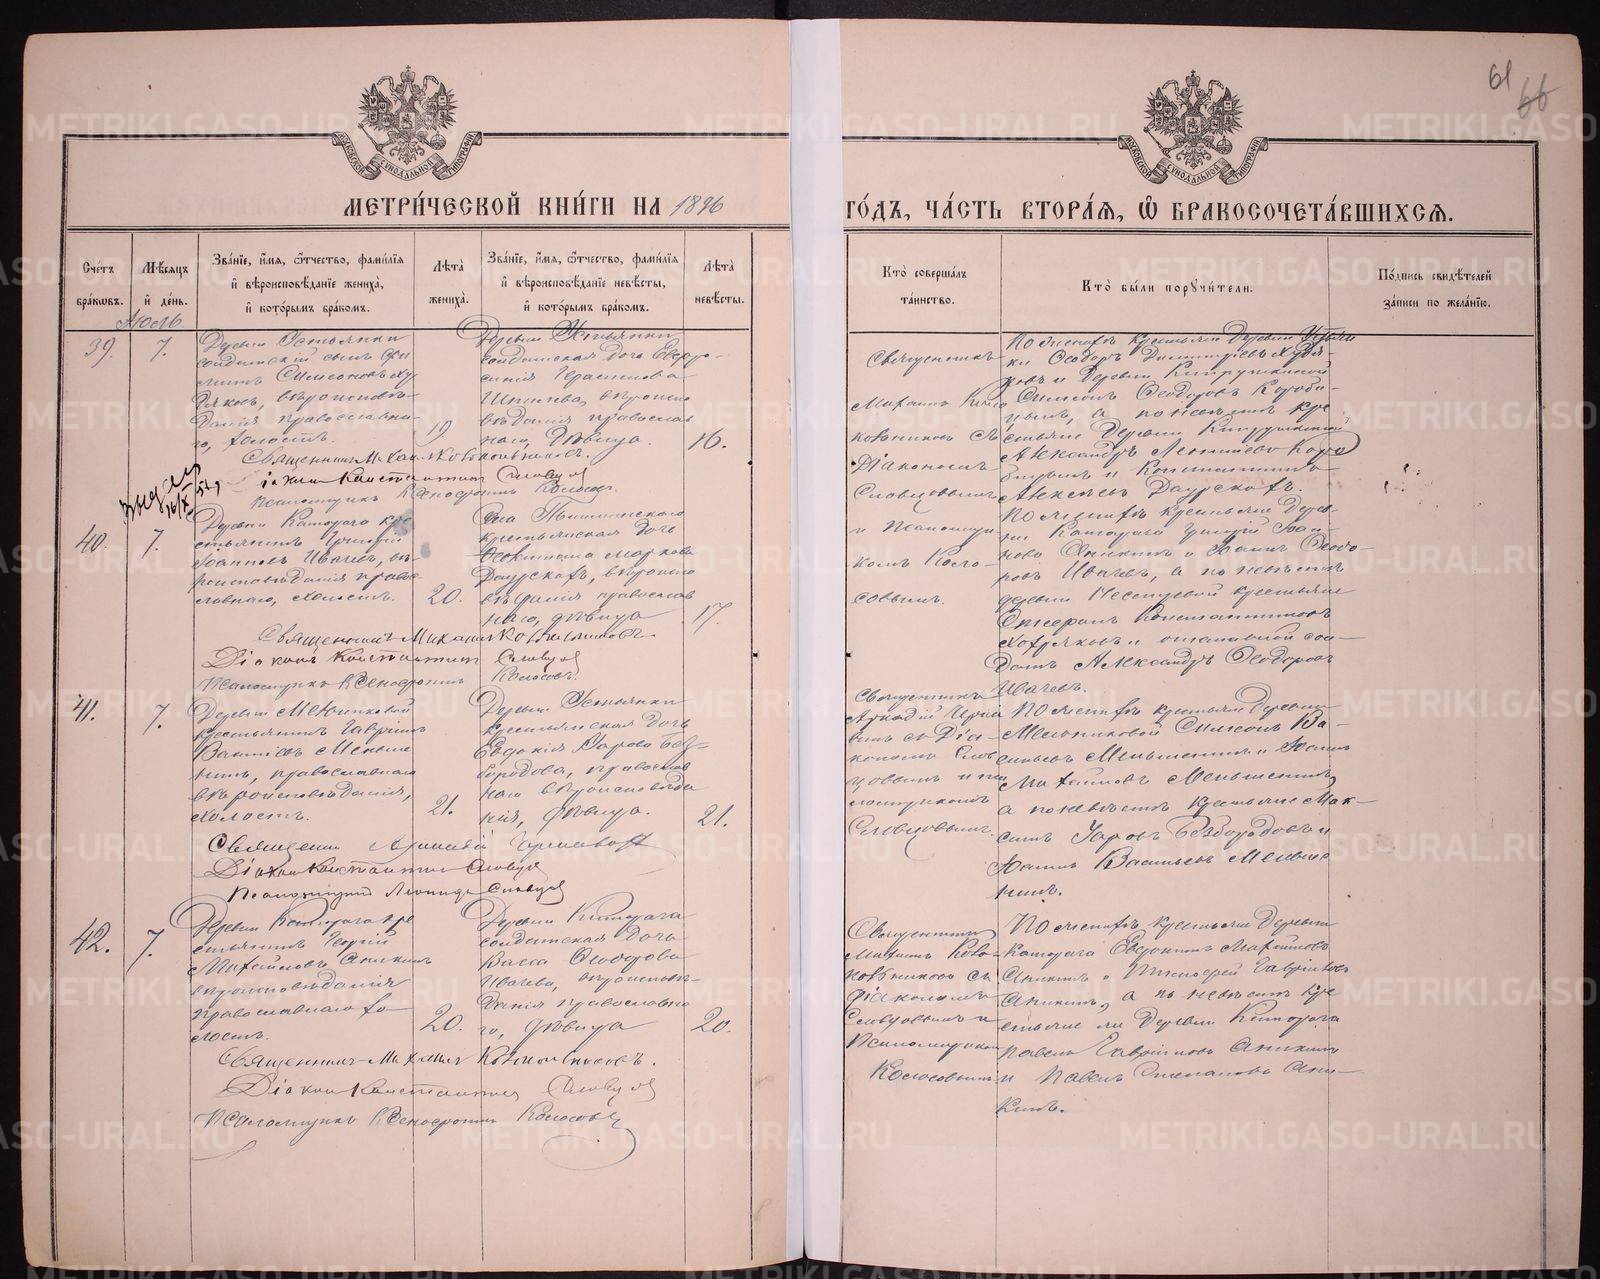 61
66
МЕТРИ́ЧЕСКОЙ КНИ́ГИ НА 1896
ГО́ДЪ, ЧА́СТЬ ВТОРА́Я, Ѿ БРАКОСОЧЕТА́ВШИХСЯ.
Сче́тъ бра́кѡвъ.
Мѣ́сяцъ и҆ де́нь.
Зва́нїе, и҆́мя, ѻ҆́тчество, фами́лїя и҆ вѣроисповѣ́данїе жениха̀, и҆ кото́рымъ бра́комъ.
Лѣ́та жениха̀.
Зва́нїе, и҆́мя, ѻ҆́тчество, фами́лїя и҆ вѣроисповѣ́данїе невѣ́сты, и҆ кото́рымъ бра́комъ.
Лѣ́та невѣ́сты.
Кто̀ соверша́лъ та́инство.
Кто̀ бы́ли поручи́тели.
По́дпись свидѣ́телей за́писи по жела́нїю.
Іюль
39.
7.
Деревни Устьянки
солдатскій сынъ
Симеоновъ Ху-
дяковъ, вѣроисповѣ-
данія православна-
го, холостъ.
19
Деревни Устьянки
солдатская дочь Евфро-
синія Герасимова
вѣроиспо
вѣданія православ
наго, дѣвица.
16.
Священникъ
Михаилъ Коко
ковниковъ съ
Діакономъ
Словцовымъ
и Псаломщи
комъ Коло-
совымъ.
По женихѣ крестьяне Деревни Устьян
ки Ѳеодоръ Димитріевъ Худя-
ковъ и Деревни
Симеонъ Ѳеодоровъ Короби-
цынъ, а по невѣстѣ кре
стьяне Деревни
Александръ Леонтіевъ Коро
бицынъ и Константинъ
Алексѣевъ Даурскихъ.
Священникъ Михаилъ
Діаконъ Константинъ Словцовъ
Псаломщикъ Ксенофонтъ Колосовъ
40.
7.
Деревни Каторача кре
стьянинъ Григорій
Іоанновъ Ивачевъ, вѣ-
роисповѣданія право-
славнаго, холостъ.
20.
Села Пышминскаго
крестьянская дочь
Маркова
Даурскихъ, вѣроиспо
вѣданія православ
наго, дѣвица
17.
По женихѣ крестьяне Дерев-
ни Каторача Григорій Іоан-
новъ Аникинъ и Іоаннъ Ѳеодо-
ровъ Ивачевъ, а по невѣстѣ
деревни крестьяне
Константиновъ
и отставной сол-
датъ Александръ Ѳеодоровъ
Ивачевъ.
Священникъ Михаилъ
Діаконъ Константинъ Словцовъ
Псаломщикъ Ксенофонтъ Колосовъ.
41.
7.
Деревни Мельниковой
крестьянинъ Гавріилъ
Васильевъ Меньше
нинъ, православнаго
вѣроисповѣданія,
холостъ.
21.
Деревни Устьянки
крестьянская дочь
Евдокія Уарова Без-
бородова, православ
наго вѣроисповѣда
нія, дѣвица.
21.
Священникъ
Аркадій
съ Діа-
кономъ Слов
цовымъ и пса
ломщикомъ
Словцовымъ.
По женихѣ крестьяне Деревни
Мельниковой Симеонъ Ва-
сильевъ Меньшенинъ и Іоаннъ
Михайловъ Меньшенинъ,
а по невѣстѣ крестьяне Мак-
симъ Уаровъ Безбородовъ и
Іоаннъ Васильевъ Меньше
нинъ.
Священникъ Аркадій
Діаконъ Константинъ Словцовъ
Псаломщикъ Леонидъ Словцовъ
42.
7.
Деревни Каторача кре
стьянинъ Георгій
Михайловъ Аникинъ
вѣроисповѣданія
православнаго хо-
лостъ.
20.
Деревни Каторача
солдатская дочь
Васса Ѳеодорова
Ивачева, вѣроисповѣ-
данія православна
го, дѣвица
20.
Священникъ
Михаилъ Коко-
ковниковъ съ
діакономъ
Словцовымъ и
Псаломщикомъ
Колосовымъ
По женихѣ крестьяне Деревни
Каторача Евдокимъ Михайловъ
Аникинъ и Тимоѳей Гавріиловъ
Аникинъ, а по невѣстѣ кре
стьяне Деревни Каторача
Павелъ Гавріиловъ Аникинъ
и Павелъ Степановъ Ани-
кинъ.
Священникъ Михаилъ
Діаконъ Константинъ Словцовъ
Псаломщикъ Ксенофонтъ Колосовъ
METRIKI.GASO-URAL.RU